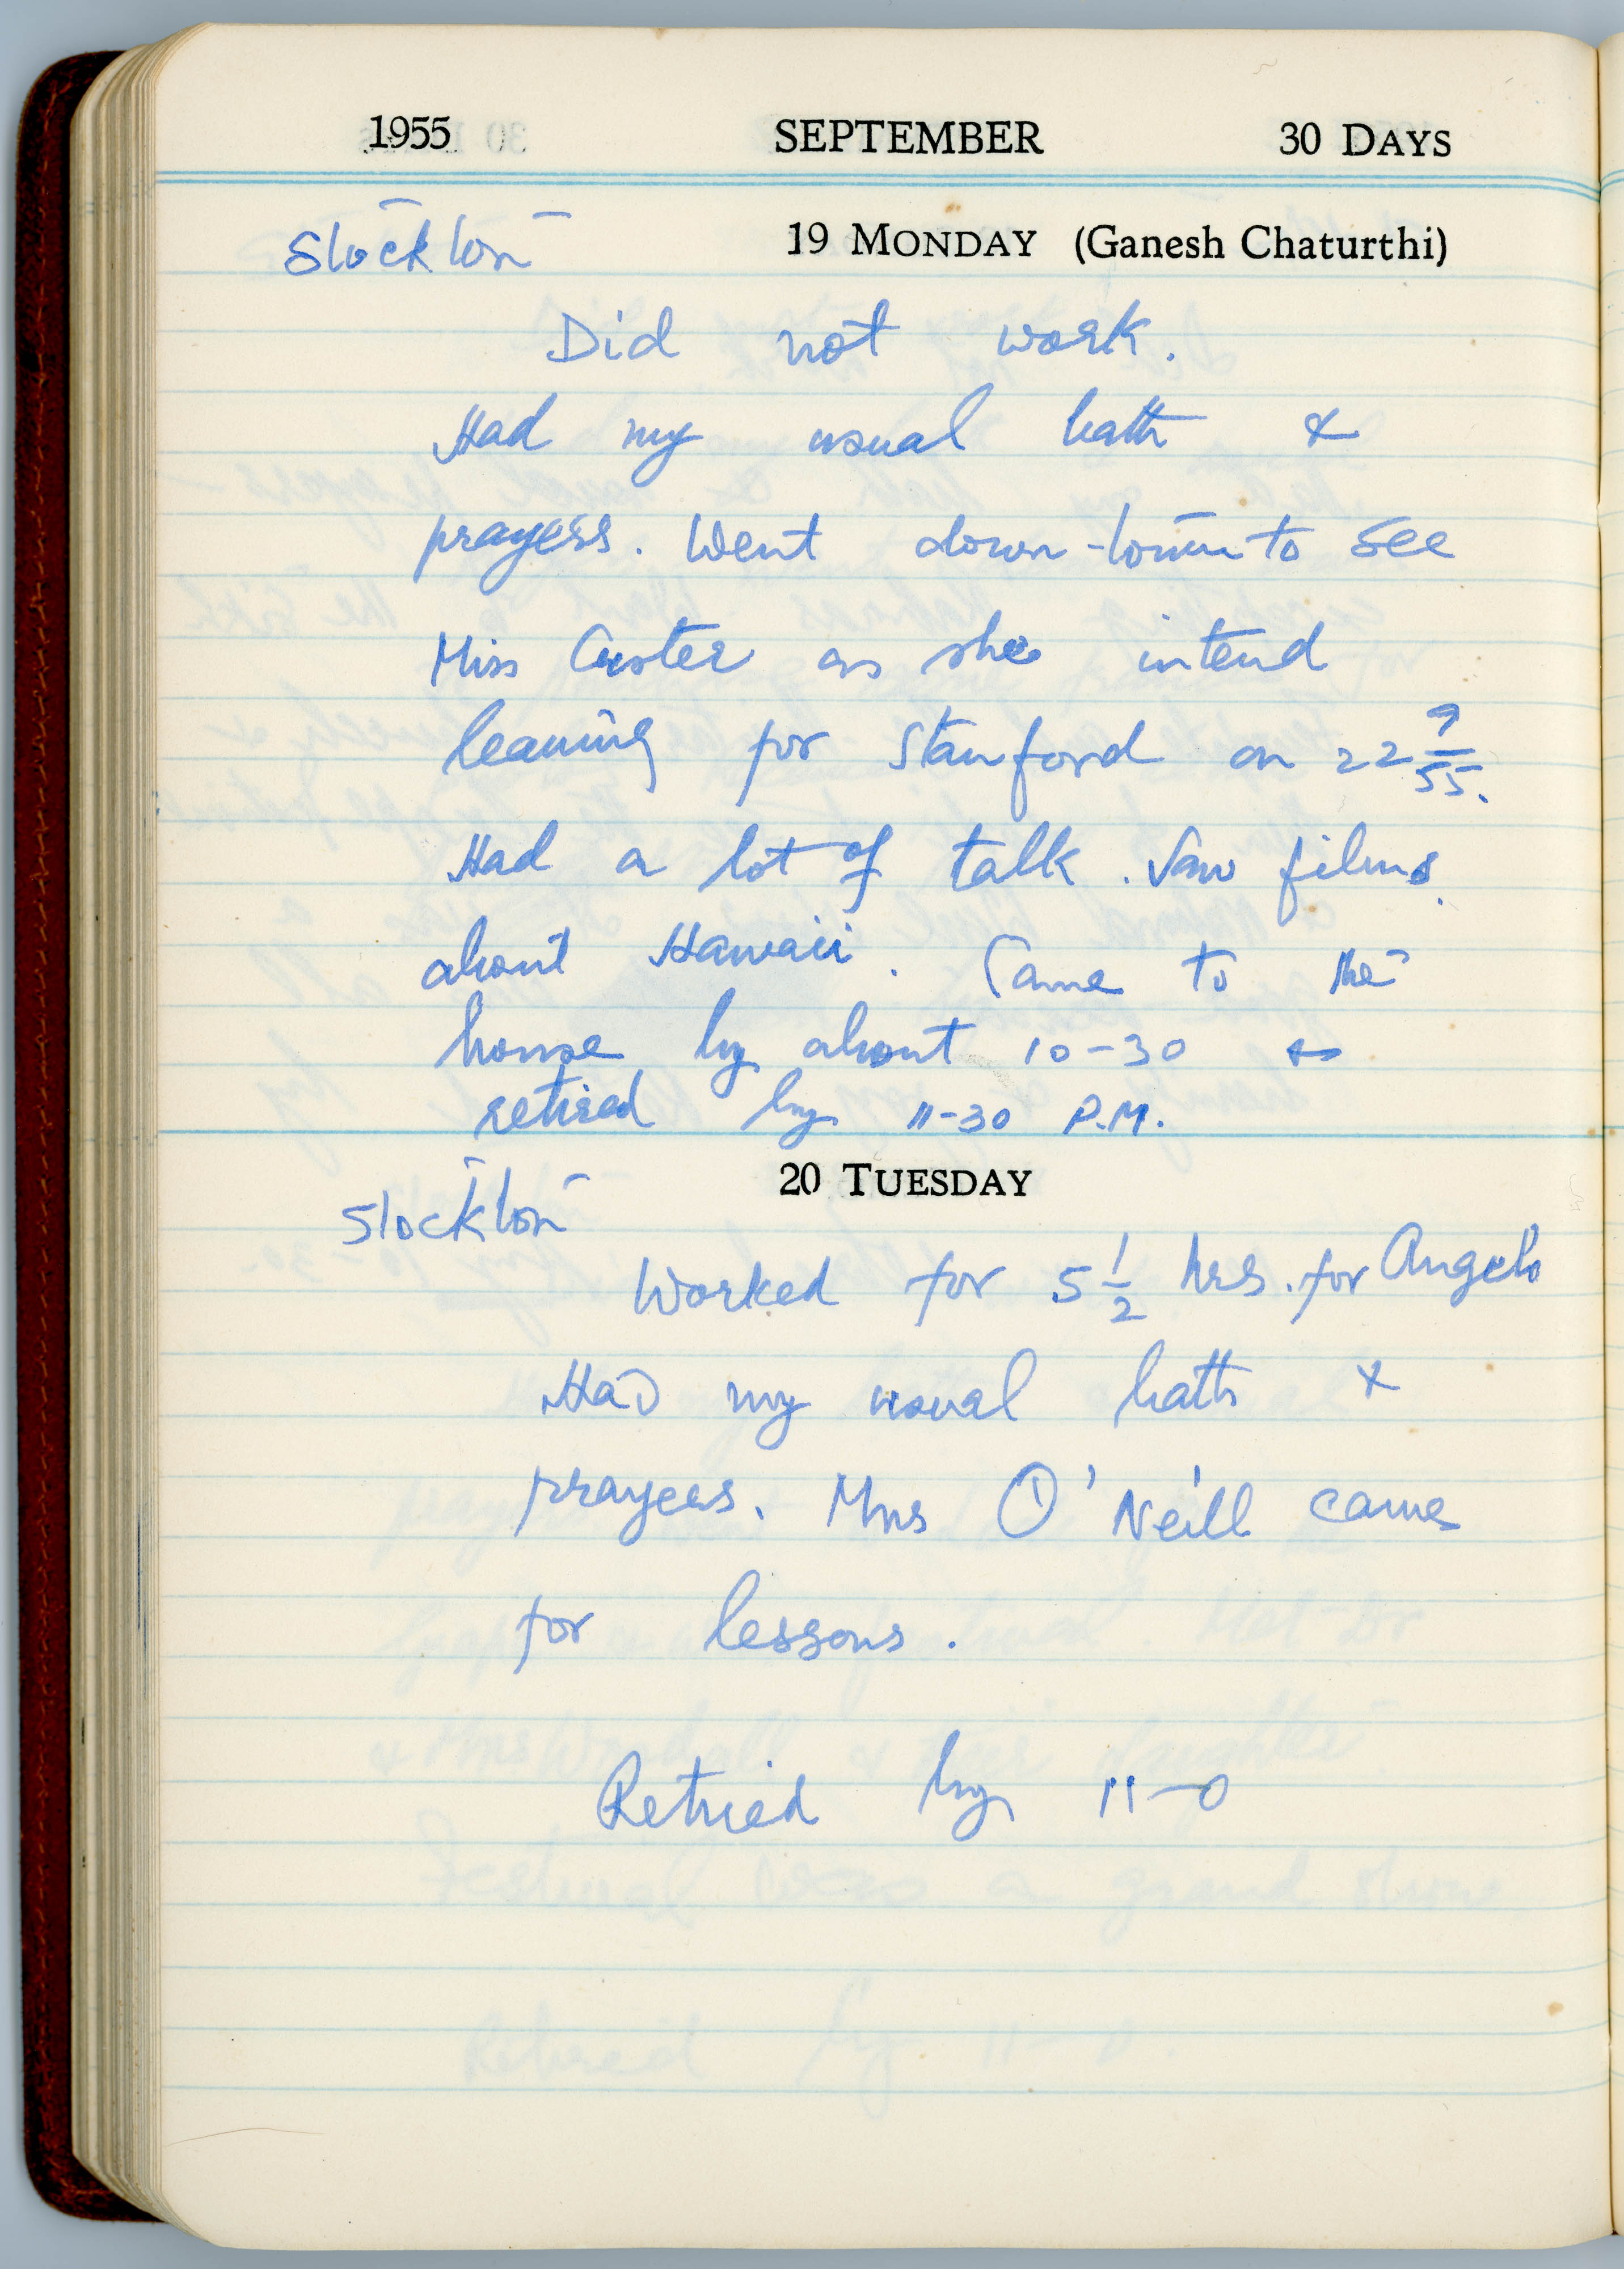 1955 SEPTEMBER 30 DAYS
Stockton 19 MONDAY (Ganesh Chaturthi)
Did not work.
Had my usual bath &
prayers. Went down-town to see
Miss Custer as she intend
leaving for Stanford on 22 9/55.
Had a lot of talk. Saw films
about Hawaii. Came to the
house by about 10-30 &
retired by 11-30 P.M.
20 TUESDAY
Stockton
Worked for 5 1/2 hrs. for Angelo
Had my usual bath &
prayers. Mrs O'Neill came
for lessons.
Retried by 11-0